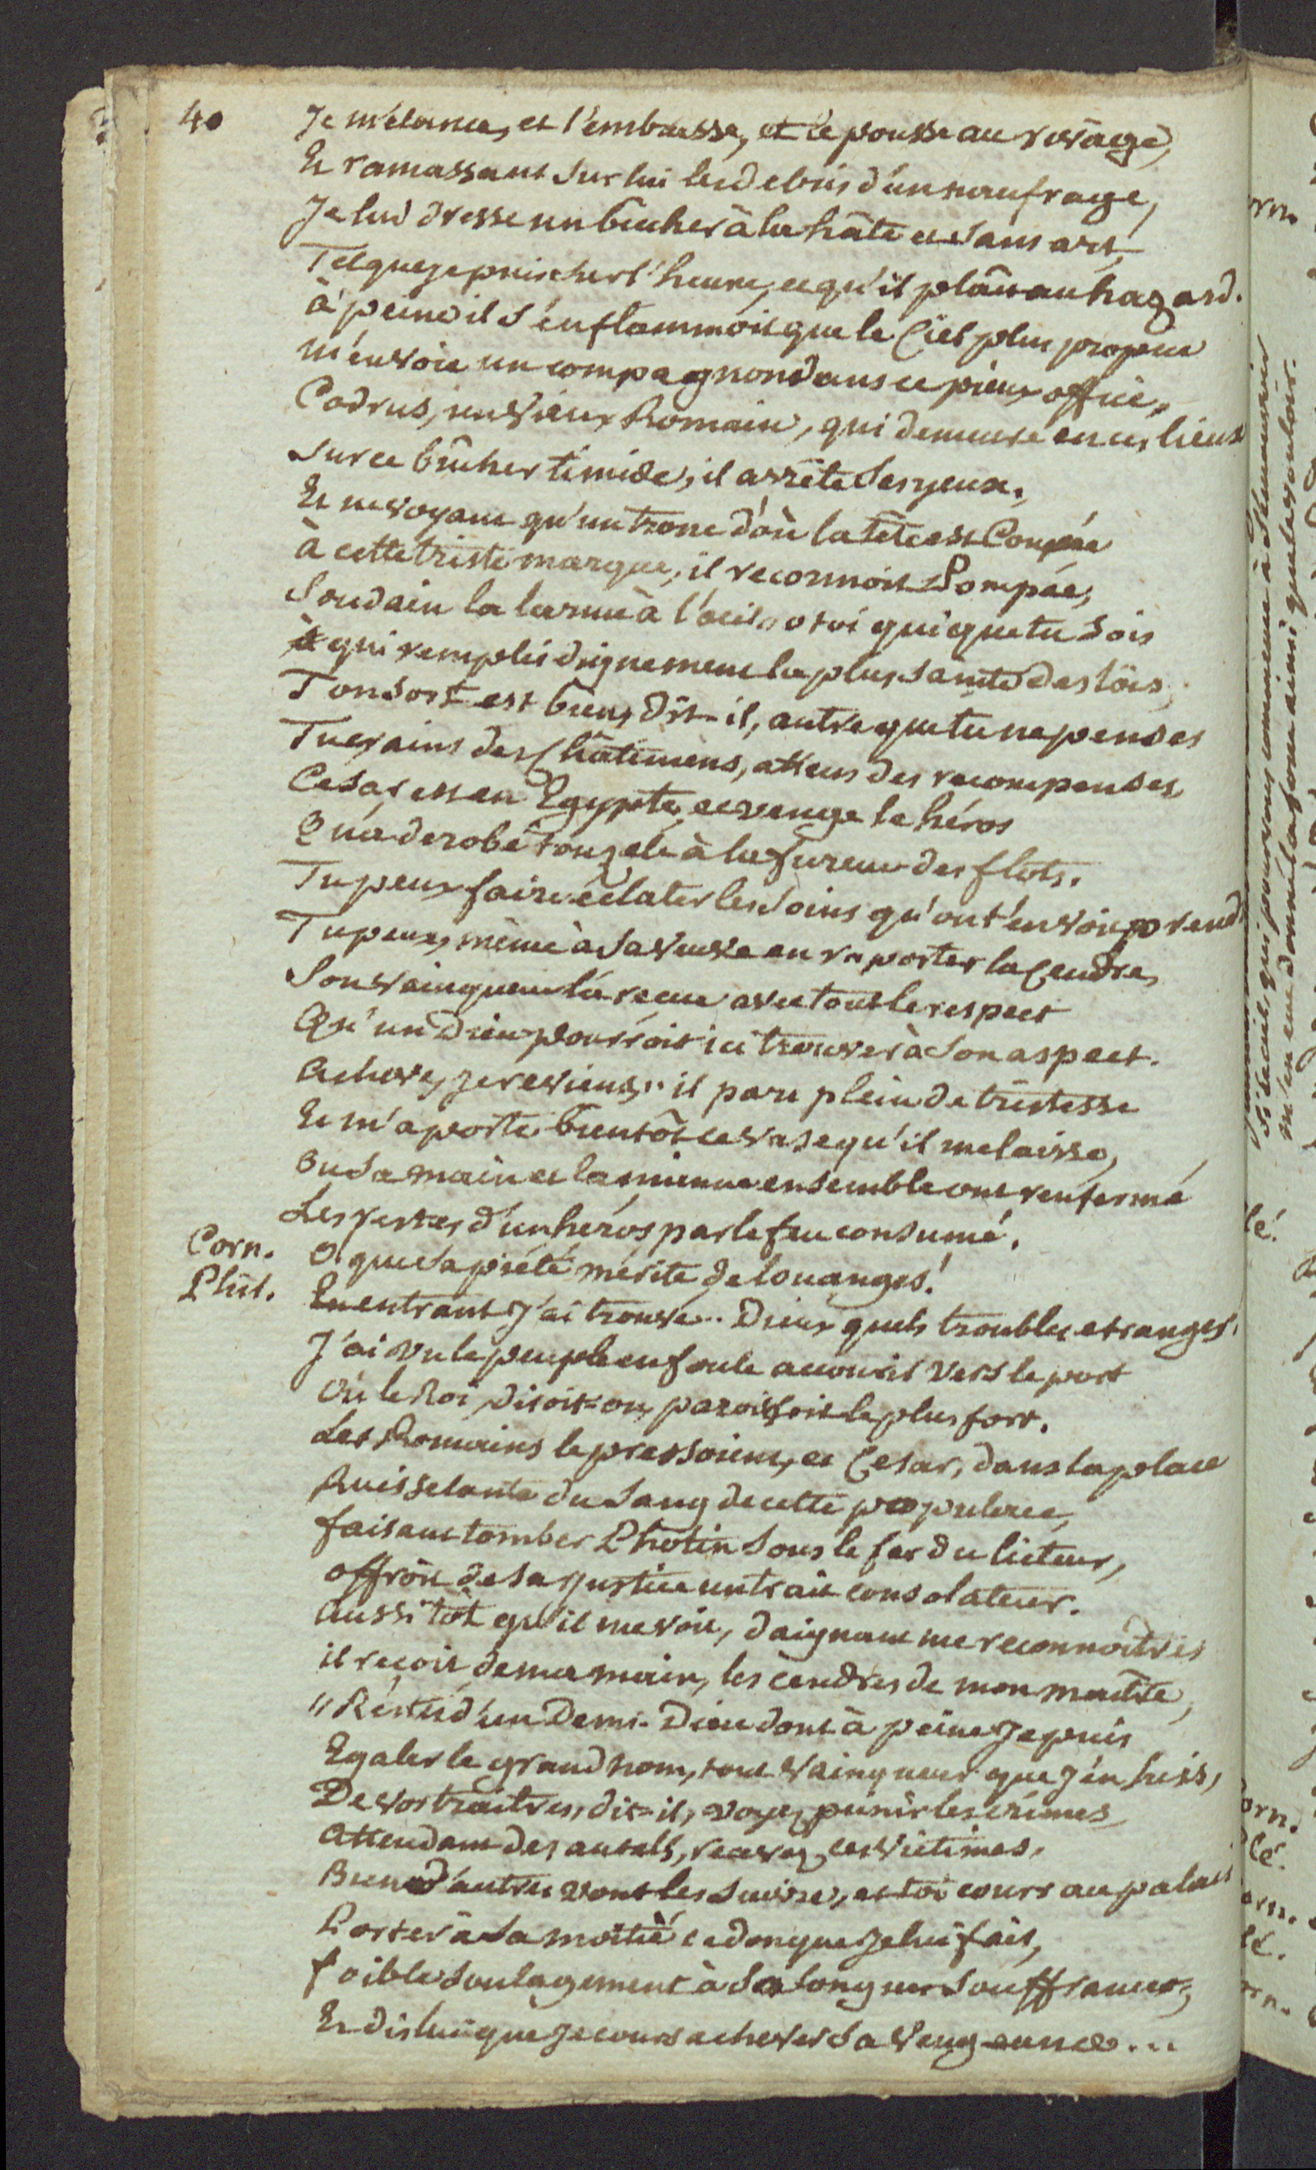 40
Je m'élance, et l'embrasse, et le pousse au rivage,
Et ramassant sur lui les debris d'un naufrage,
Je lui dresse un bûcher à la hâte et sans art,
Tel que je puis sur l'heure, et qu'il plût au hazard.
à peine il s'enflammoit que le Ciel plus propice
m'envoie un compagnon dans ce pieux office,
Codrus, un vieux Romain, qui demeure en ces lieux
Sur ce bûcher timide, il arrête ses yeux.
Et ne voyant qu'un tronc d'où la tête est Coupée
à cette triste marque, il reconnoit Pompée,
Soudain la larme à l'oeil, o toi qui que tu sois
qui remplis dignement la plus sainte des lois,
Ton sort est bien, dit-il, autre que tu ne penses
Tu crains des Châtimens, attens des recompenses
Cesar est en Egypte, et venge le héros
Qu'a derobé ton zele à la fureur des flots.
Tu peux faire éclater les soins qu'on t'en voit prend
Tu peux, même à sa veuve en raporter la Cendre,
Son vainqueur l'a recue avec tout le respect
Qu'un Dieu pourroit ici trouver à son aspect.
Acheve, je reviens." il part plein de tristesse
Et m'aporte bientôt ce vase qu'il me laisse,
Ou sa main et la mienne ensemble ont renfermé
Les restes d'un héros par le feu consumé.
Corn. O que sa piété mérite de louanges!
Phil. En entrant j'ai trouvé.. Dieux quels troubles etranges.
J'ai vu le peuple en foule accourir vers le port
Où le Roi, disoit-on, paroissoit le plus fort.
Les Romains le pressoient, et Cesar, dans la place
Ruisselante du sang de cette populace,
faisant tomber Photin sous le fer du licteur,
offroit de sa justice un trait consolateur.
Aussitôt qu'il me voit, daignant me reconnoître
il reçoit de ma main, les cendres de mon maître,
"Restes d'un Demi-Dieu dont à peine je puis
Egaler le grand nom, tout vainqueur que j'en suis,
De vos traîtres, dit-il, voyez punir les crimes
Attendant des autels, recevez ces victimes.
Bien d'autres vont les suivre, et toi cours au palais
Porter à sa moitié ce don que je lui fais,
foible soulagement à sa longue souffrance,
Et dis lui que je cours achever sa vengeance...